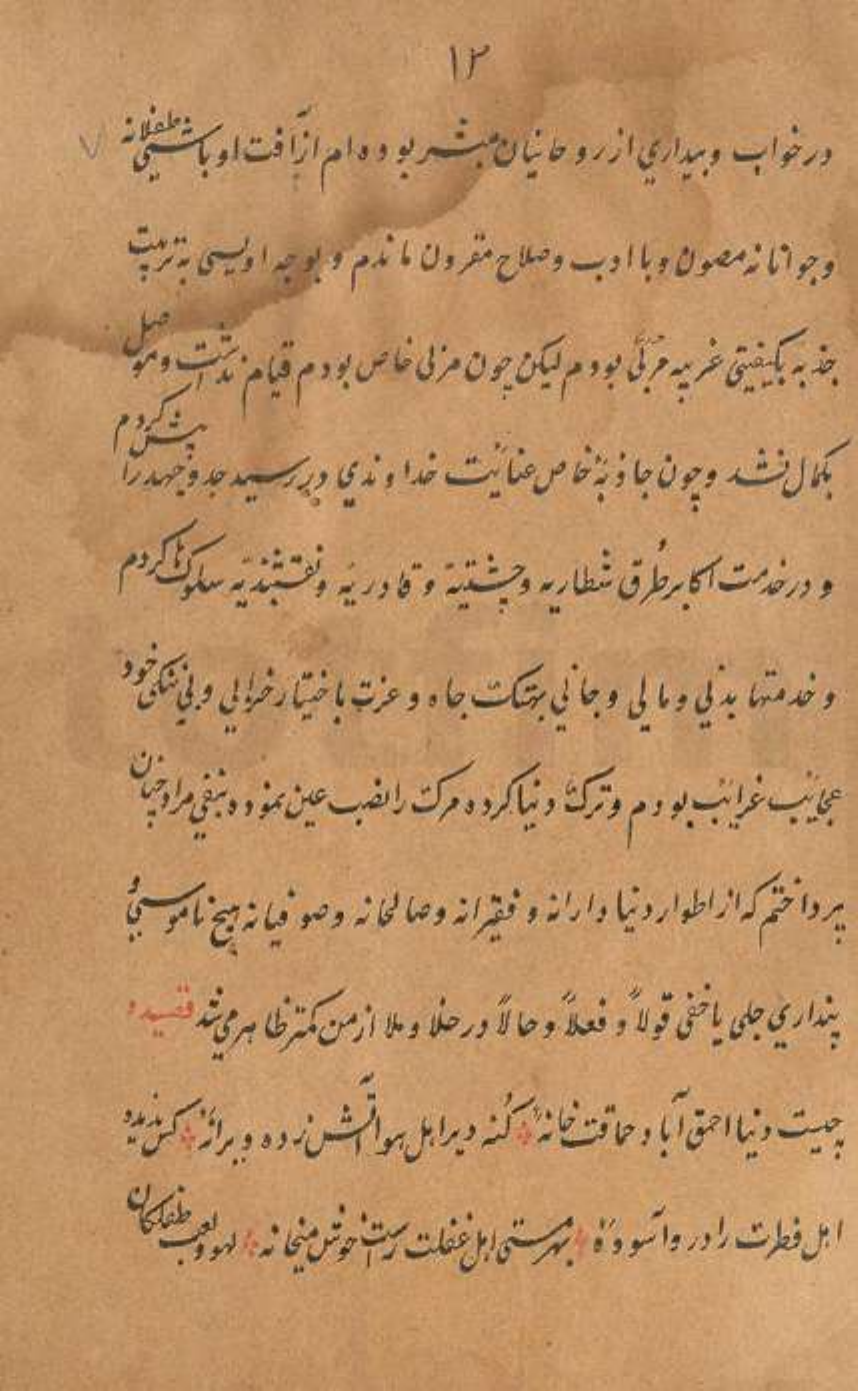 ١٢
در خواب و بیداری از روحانیان مبشر بوده ام از آفت اوباشی طفلانه
و جوانانه مصون و با ادب و صلاح مقرون ماندم و بوجه اویسی به تربیت
جذبه بکیفیتی غریبه مربی بودم لیکن چون مزلی خاص بودم قیام نداشت و موصل
بکمال نشد و چون جاذبهٔ خاص عنایت خداوندی در رسید جد و جهد را پیش کردم
و در خدمت اکابر طُرق شطاریه و چشتیة و قادریه و نقشبندیه سلوک کردم
و خدمتها بدنی و مالی و جانی بهتک جاه و عزت باختیار خرابی و بی ننکی خود
عجایب غرایب بودم و ترک دنیا کرده مرک را نصب عین نموده بنفی مراد چنان
پرداختم که از اطوار دنیا دارانه و فقیرانه و صالحانه و صوفیانه هیچ ناموسی و
پنداری جلی یا خفی قولاً و فعلاً و حالاً در خلا و ملا از من کمتر ظاهر می شد قصیده
چیست دنیا احمق آباد و حماقت خانهٔ کُنه دیر اهل هوا آتش زده ویرانهٔ کس ندیده
اهل فطرت را درو آسودهٔ بهر مستی اهل غفلت راست خوش میخانه لهو و لعب طفلکان